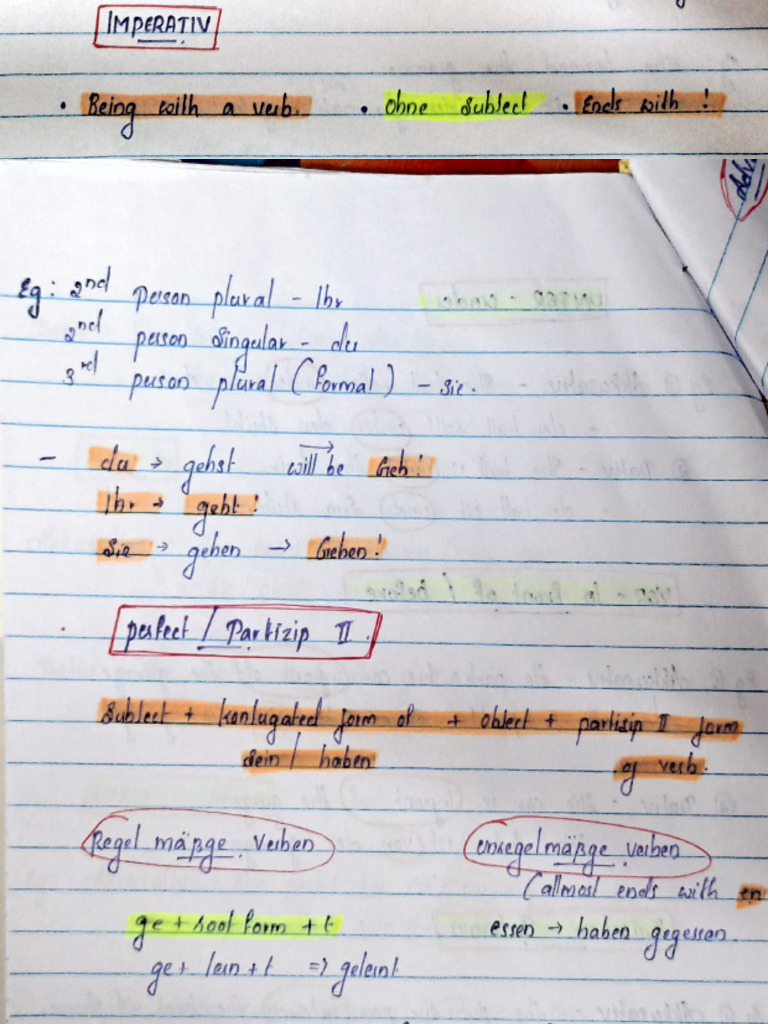 IMPERATIV
• Being with a verb. • Ohne Subject • Ends with !
Eg: 2nd person plural - Ihr
2nd person Singular - du
3rd person plural (Formal) - Sie.
- du → gehst will be Geh!
Ihr → geht!
Sie → gehen → Gehen!
perfect / Partizip II
Subject + konjugated form of + Object + partizip II form
sein / haben of verb.
Regel mäßge Verben enregelmäßge verben
(allmost ends with en
ge + root form + t essen → haben gegessen.
ge + lern + t => gelernt